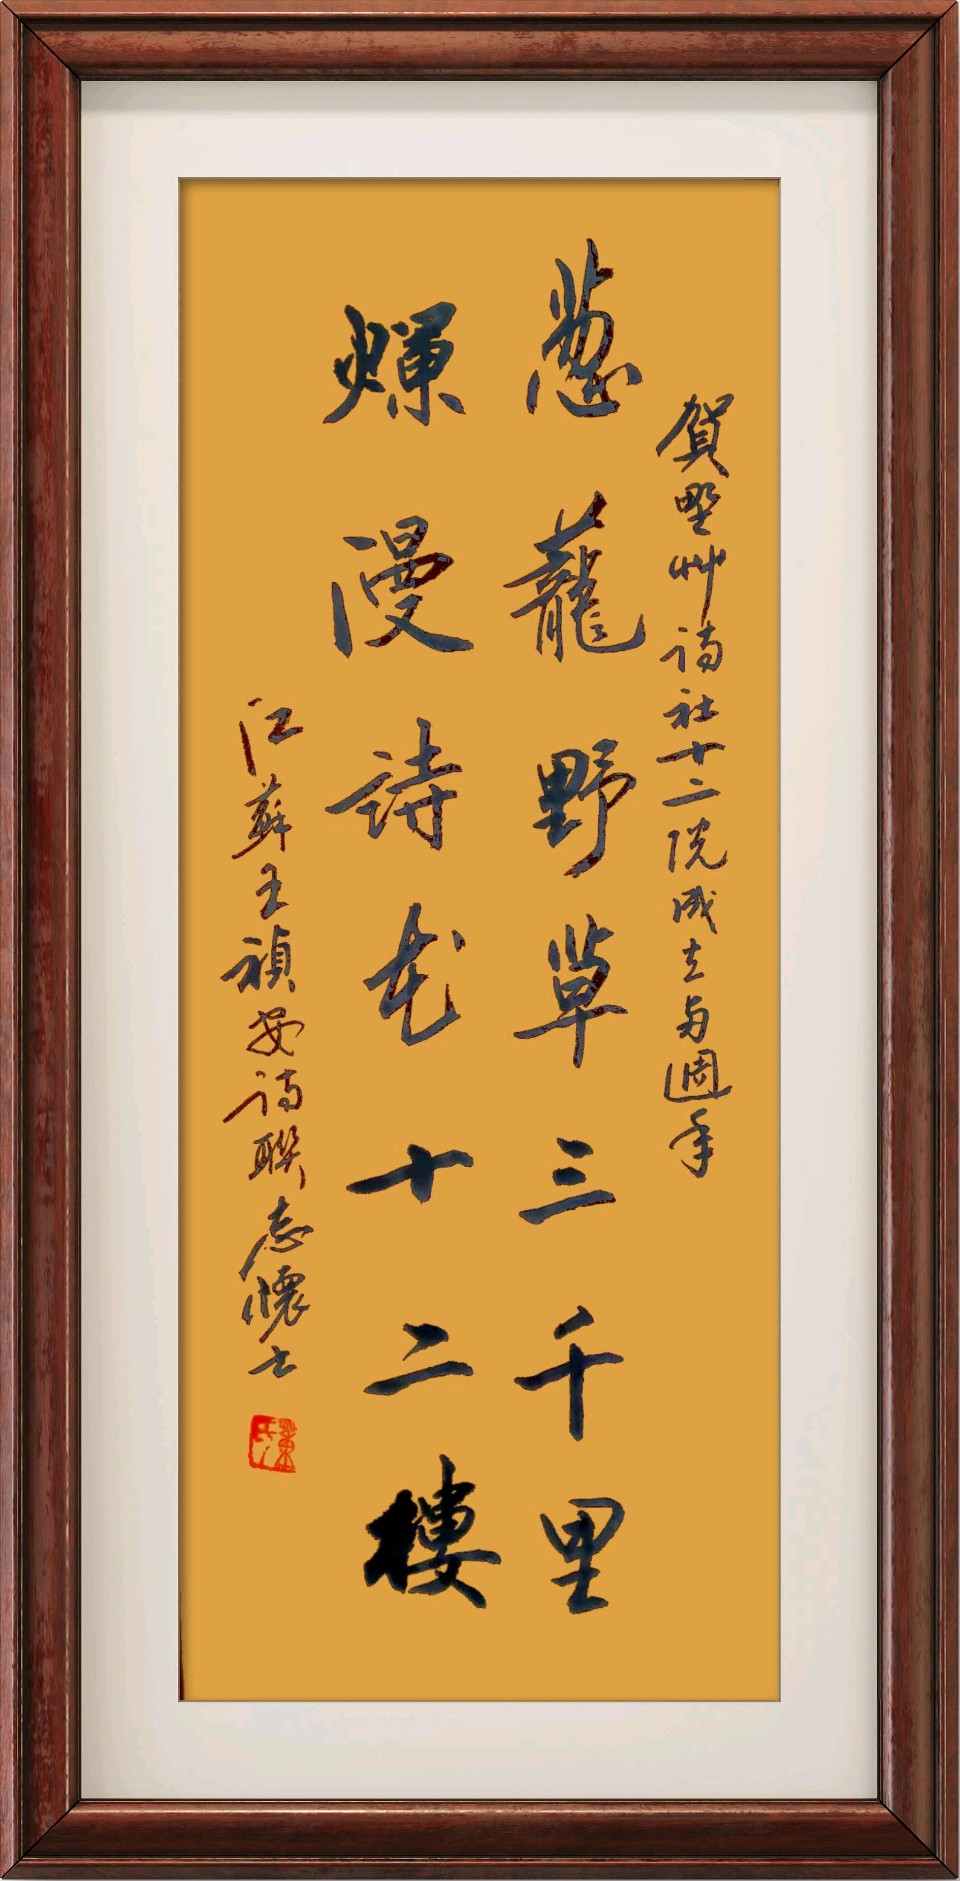 賀野艸诗社十二院成立週年
葱蘢野草三千里
爛漫詩花十二樓
江蘇王禎安诗聯志懷士